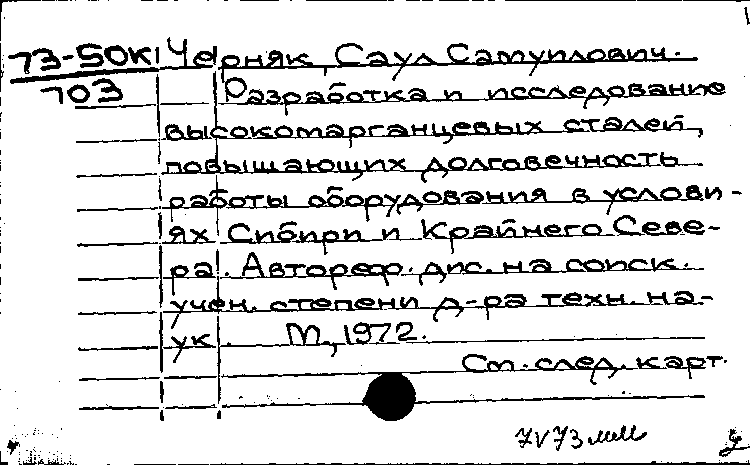 73-50К Черняк, Саул Самуилович.
703 Разработка и исследование
высокомарганцевых сталей,
повышающих долговечность
работы оборудования в услови-
ях Сибири и Крайнего Севе-
ра. Автореф. дис. на соиск.
учен. степени д-ра техн. на-
ук. М., 1972.
См. след. карт.
7V73